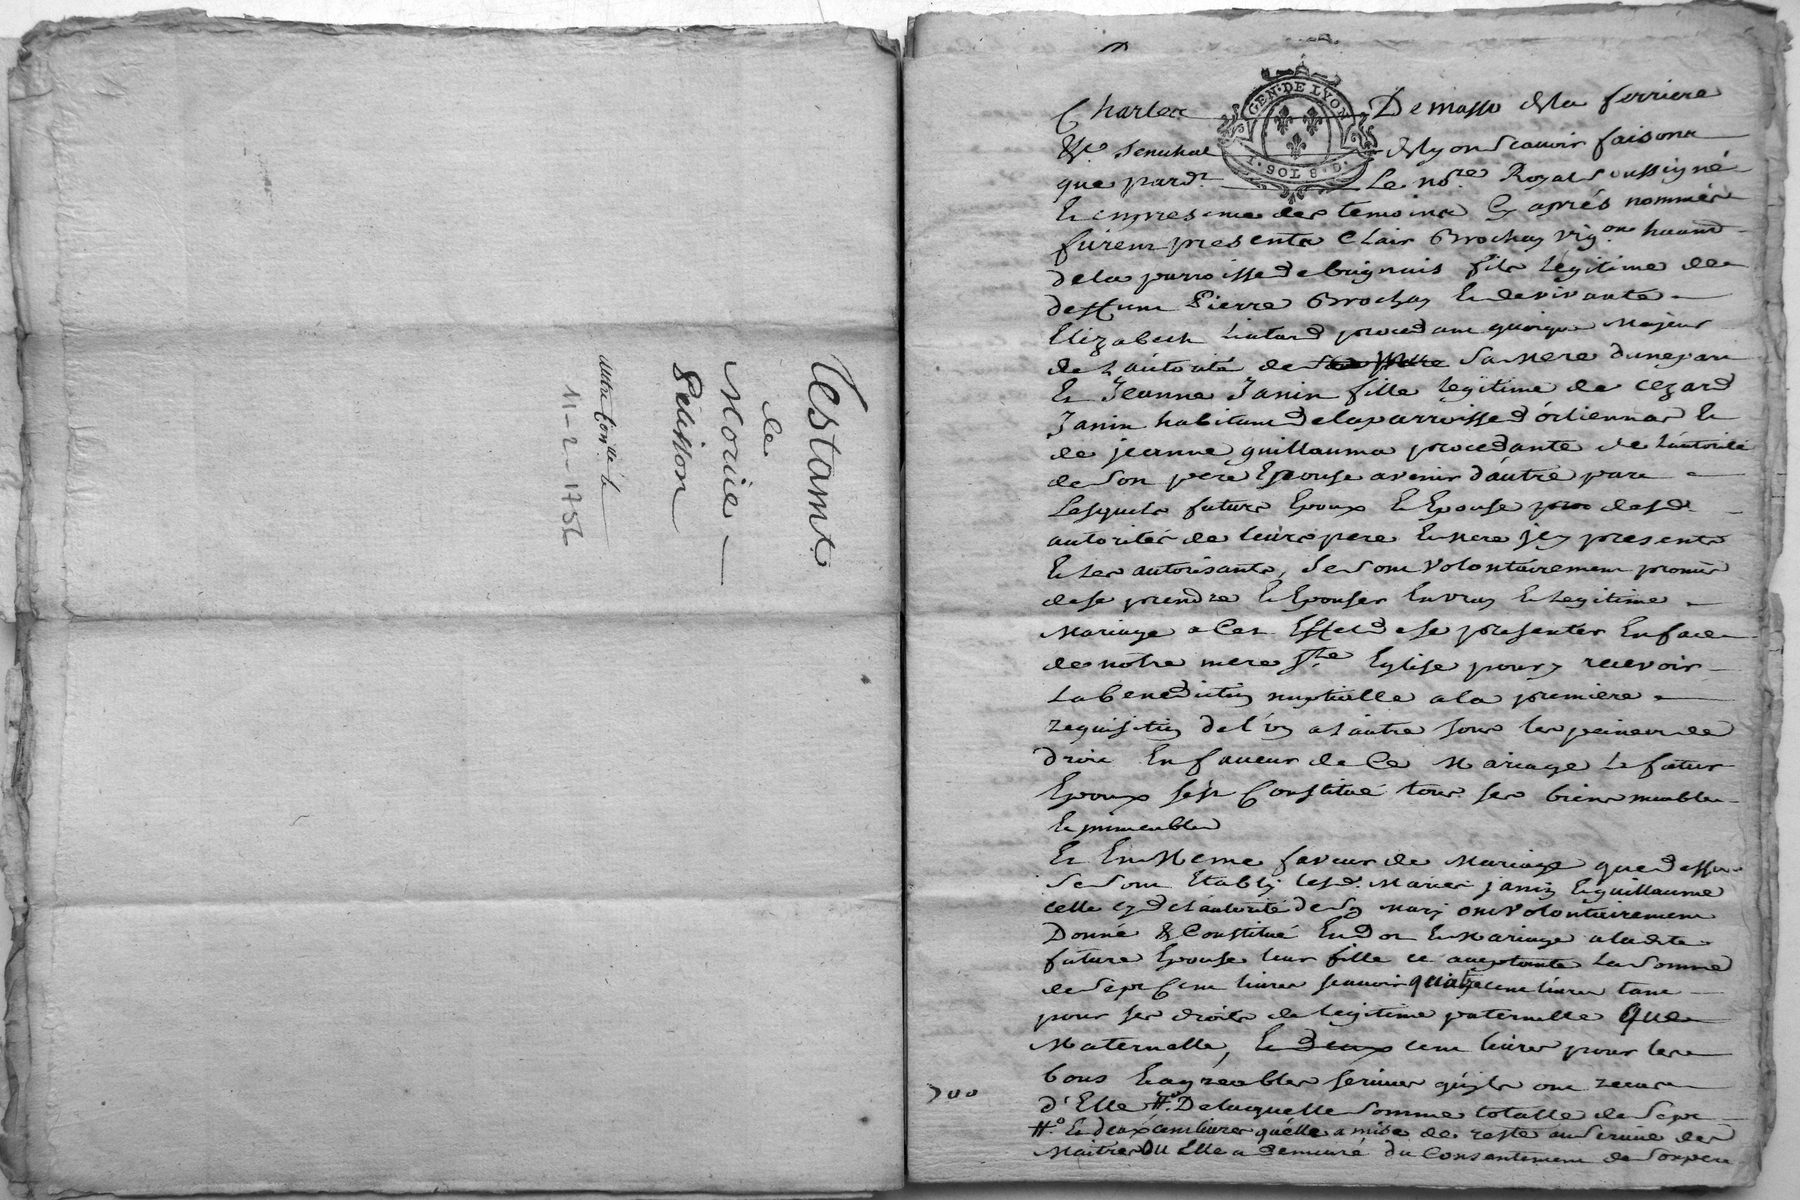 Testamt
de
Morice
Pelisson
11-2-1756
GEN·DE LYON
1·SOL 8·D·
Charles Demasso dela ferriere
&c. Senechal de lyon scavoir faisons
que pardt. Le nore. Royal soussigné
En presence des temoins cy aprés nommés
furent presents Clair Brochay vigon habitt
de la parroisse de brignais fils legitime de
deffunt Pierre Brochay Et de vivante
Elizabeth procedant quoique Majeur
de L'autorité de sa Mere d'une part
Et Jeanne Janin fille legitime de Cezard
Janin habitant de la parroisse d'orliennas Et
de jeanne guillauma procedante de L'autorité
de son pere Epouse avenir d'autre part
Lesquels futurs Epoux Et Epouse desd.
autorités de leurs pere Et mere jcy presents
Et Les autorisants, se sont volontairement promis
de se prendre Et Epouser En vray Et legitime
Mariage a Cet Effet de se presenter En face
de notre mere Ste. Eglise pour y recevoir
La benediction nuptialle a la premiere
requisition de l'un a l'autre sous les peines de
droit En faveur de Ce Mariage Le futur
Epoux s'est Constitué tous ses biens meubles
Et jmmeubles
Et En Meme faveur de Mariage que dessus
se sont Etably lesd. Mariés janin Et guillaume
celle cy de l'autorité de son mary ont volontairement
Donné & Constitué En Dot Et Mariage a ladite
future Epouse leur fille ce acceptante La somme
de sept Cent livres scavoir quatre cent livres tant
pour ses droits de legitime paternelle que
Maternelle, Et deux cent livres pour les
bons Et agreables services qu'ils ont receus
700
d'Elle #.o De laquelle somme totalle de sept
#.o Et deux cent livres qu'elle a mise de reste au service des
Maitres ou Elle a demeuré du Consentement de son pere